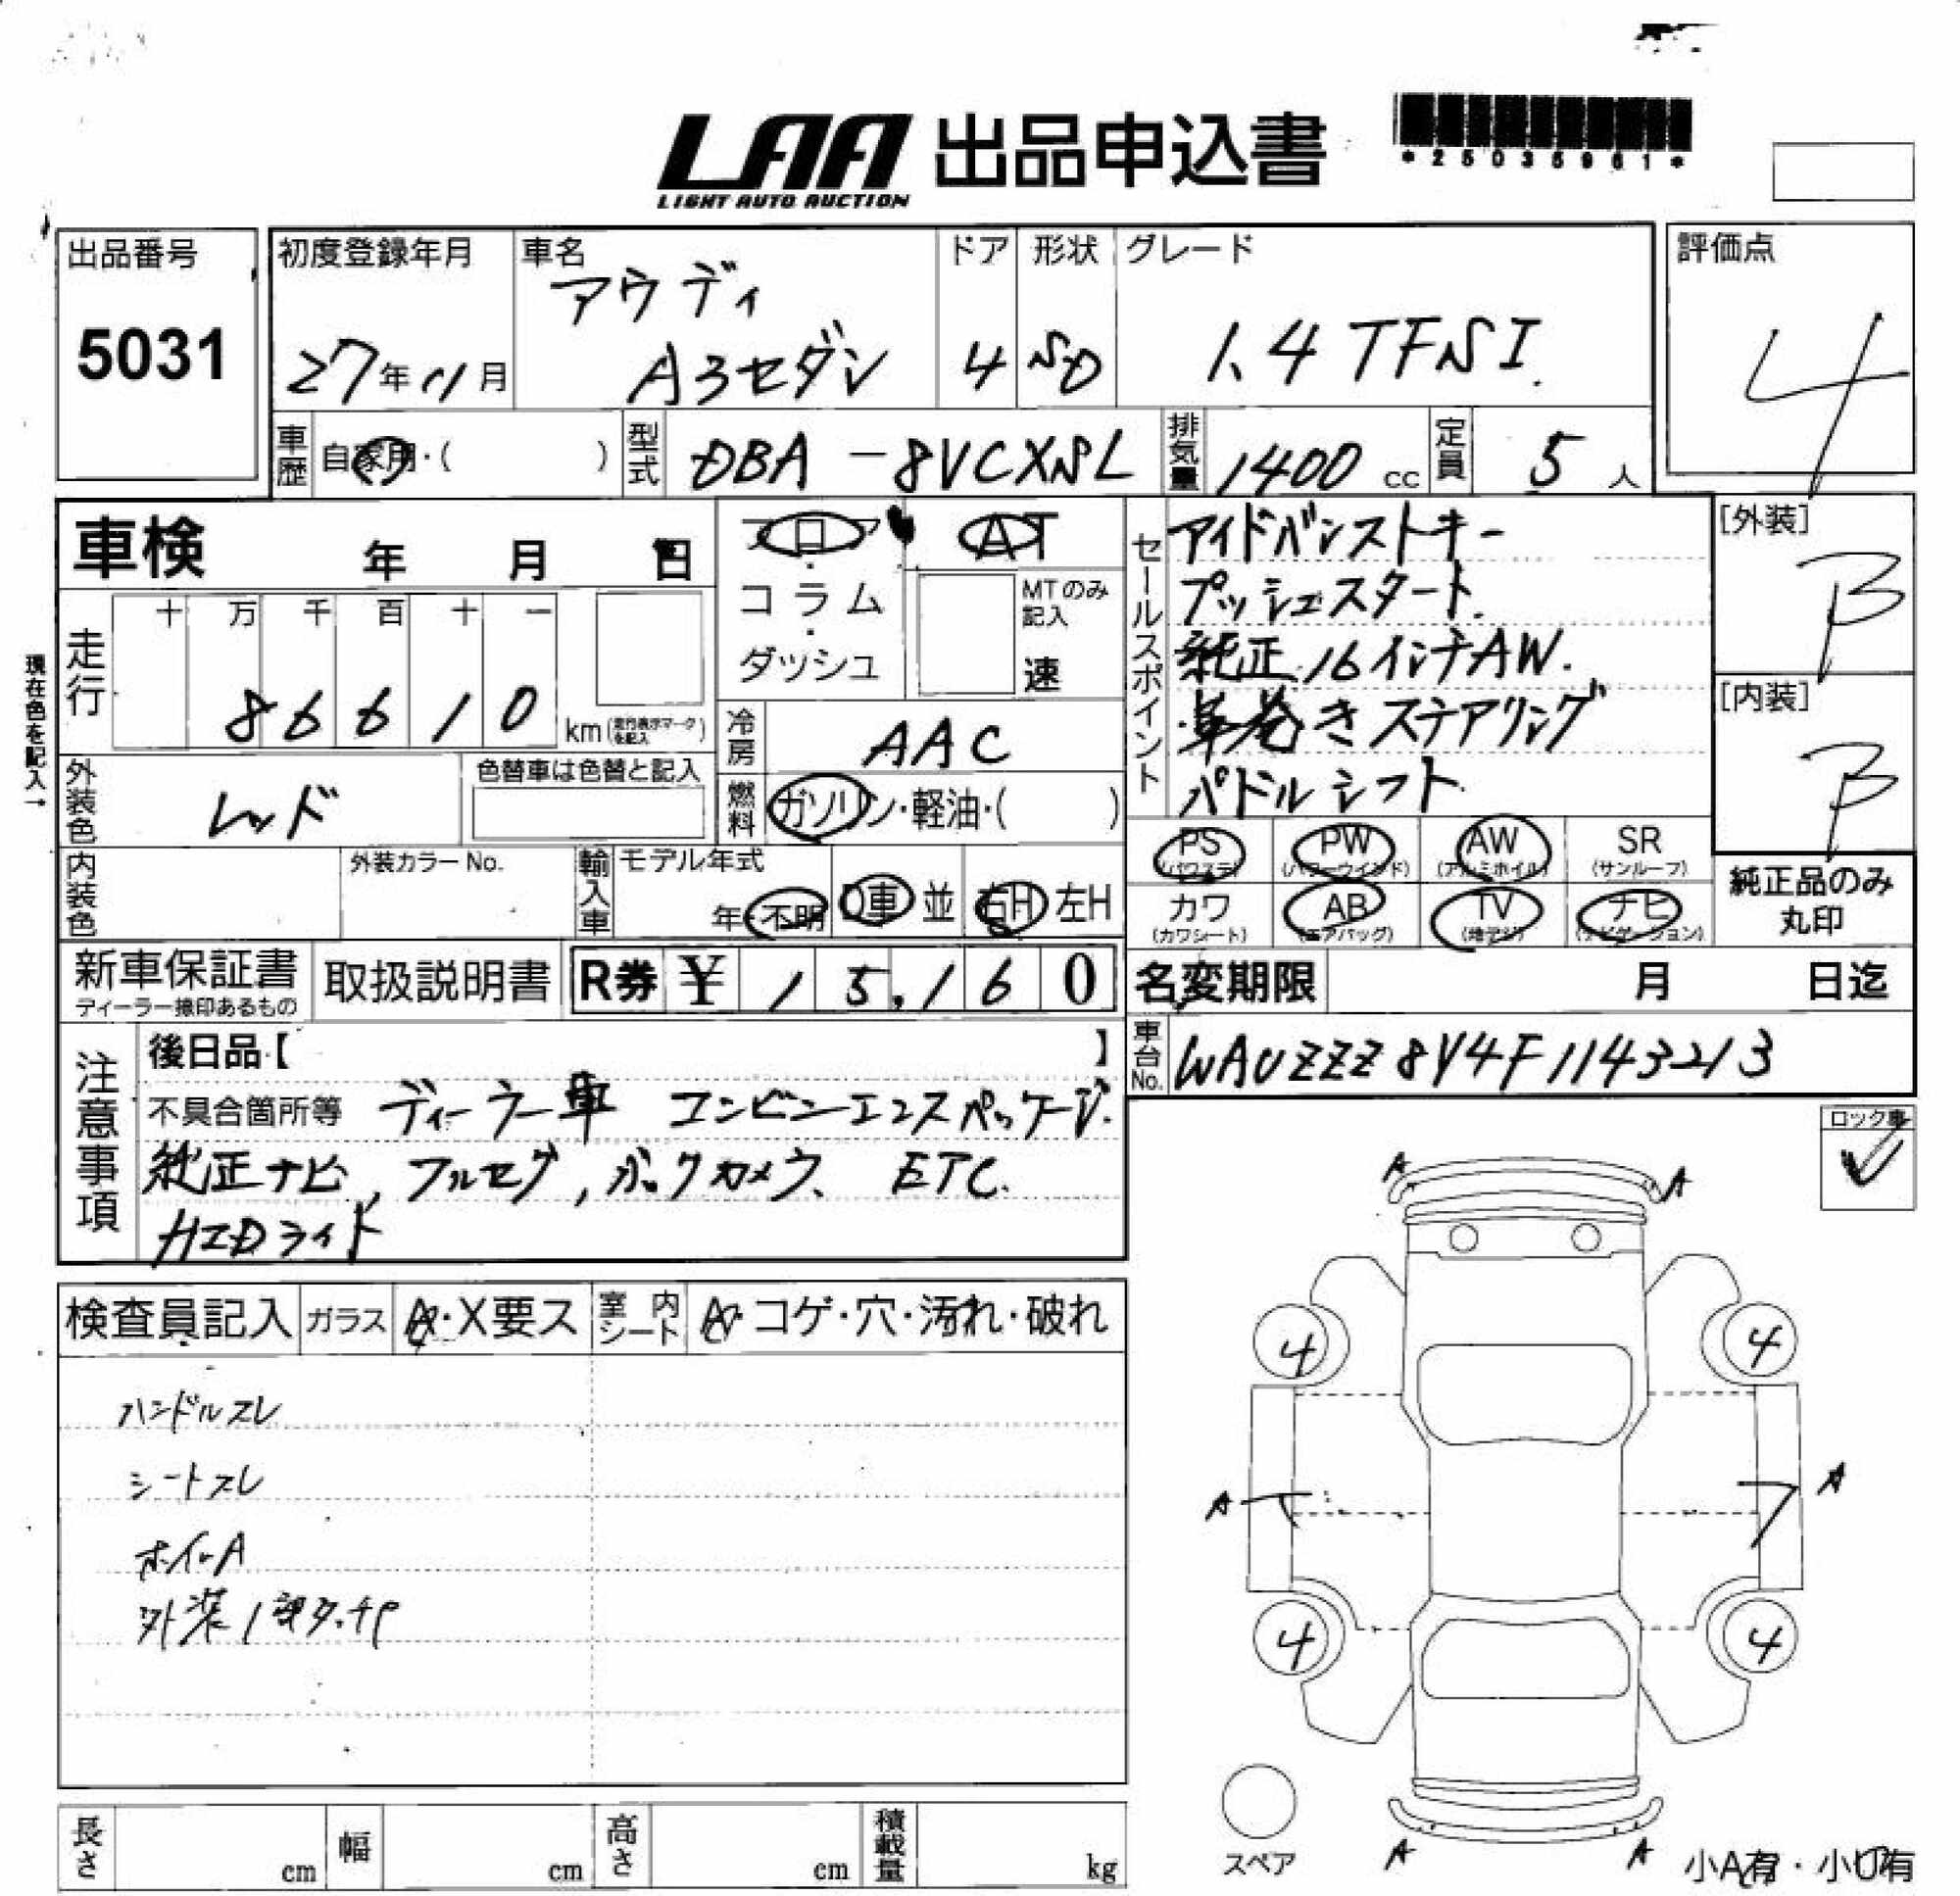 LAA 出品申込書
LIGHT AUTO AUCTION
*25035961*
出品番号
5031
初度登録年月
27年11月
車名
アウディ
A3セダン
ドア
4
形状
SD
グレード
1.4 TFSI.
評価点
4
車歴
自家用・( )
型式
DBA-8VCXSL
排気量
1400 cc
定員
5 人
車検 年 月 日
フロア
・
コラム
・
ダッシュ
AT
MTのみ
記入
速
セールスポイント
アドバンストキー
プッシュスタート.
純正16インチAW.
革巻きステアリング
パドルシフト
[外装]
B
[内装]
B
現在色を記入→
走行
十 万 千 百 十 一
8 6 6 1 0
km(走行表示マークを記入)
冷房
AAC
外装色
レッド
色替車は色替と記入
燃料
ガソリン・軽油・( )
内装色
外装カラーNo.
輸入車
モデル年式
年・不明
D車 並
右H 左H
PS
(パワステ)
PW
(パワーウインド)
AW
(アルミホイル)
SR
(サンルーフ)
カワ
(カワシート)
AB
(エアバッグ)
TV
(地デジ)
ナビ
(ナビゲーション)
純正品のみ
丸印
新車保証書
ディーラー捺印あるもの
取扱説明書
R券 ¥ 15,160
名変期限 月 日迄
車台No.
WAUZZZ8V4F1143213
注意事項
後日品【 】
不具合箇所等 ディーラー車 コンビニエンスパッケージ.
純正ナビ, フルセグ, バックカメラ、 ETC.
HIDライト
ロック車
検査員記入
ガラス
A・X要ス
室内シート
A・コゲ・穴・汚れ・破れ
ハンドルスレ
シートスレ
ホイルA
外装1部タッチP
A A
4 4
A A
4 4
A A
スペア
小A有・小U有
長さ cm
幅 cm
高さ cm
積載量 kg